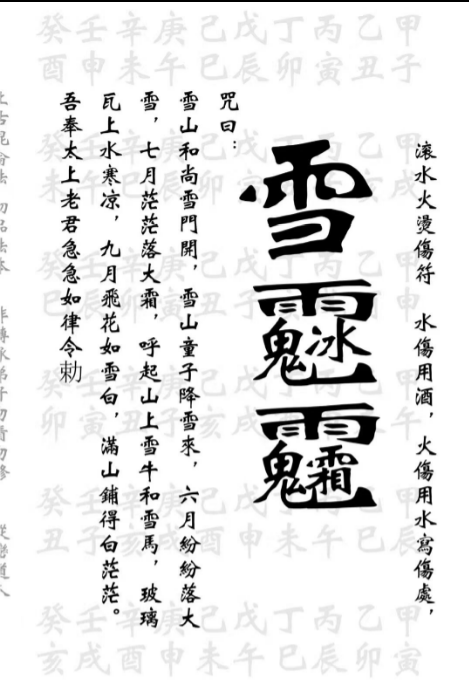 癸壬辛庚己戊丁丙乙甲
酉申未午巳辰卯寅丑子
滾水火燙傷符 水傷用酒,火傷用水寫傷處,
雪
咒曰:
雪山和尚雪門開,雪山童子降雪來,六月紛紛落大
雪,七月茫茫落大霜,呼起山上雪牛和雪馬,玻璃
瓦上水寒凉,九月飛花如雪白,滿山鋪得白茫茫。
吾奉太上老君急急如律令勅
癸壬辛庚己戊丁丙乙甲
亥戌酉申未午巳辰卯寅